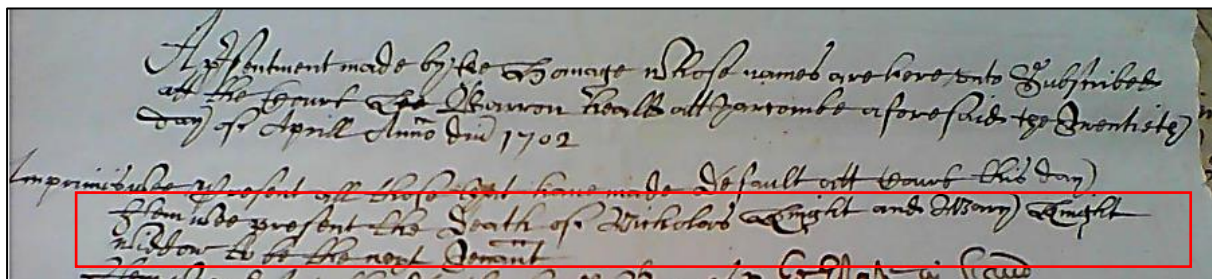 A p'sentment made by the Homage whose names are here unto Subscribed
att the Court Barron healld att Yarcombe aforesaid the Twentieth
day of Aprill Anno Dm 1702
Imprimis wee present all those that have made default att Court this day
Item wee present the Death of Nicholas Knight and Mary Knight
widdow to be the next Tennant